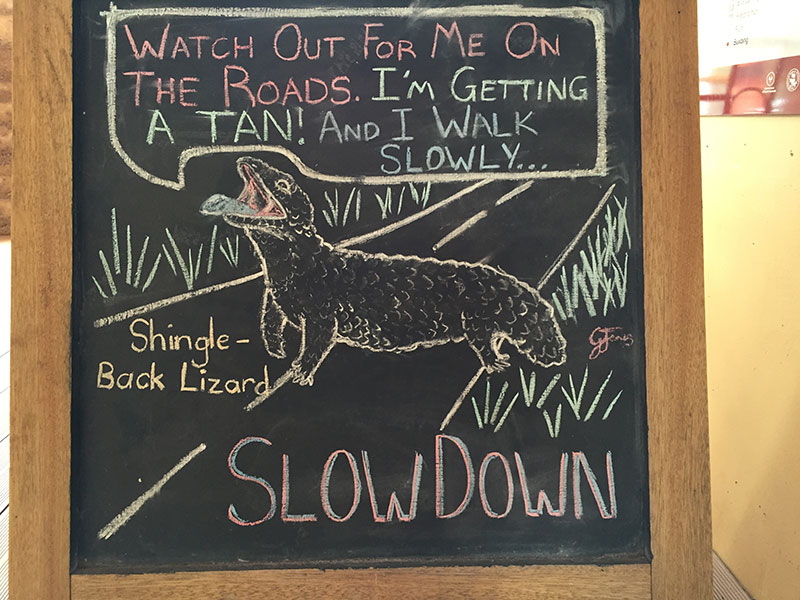 WATCH OUT FOR ME ON
THE ROADS. I'M GETTING
A TAN! AND I WALK
SLOWLY...
Shingle-
Back Lizard
SLOW DOWN